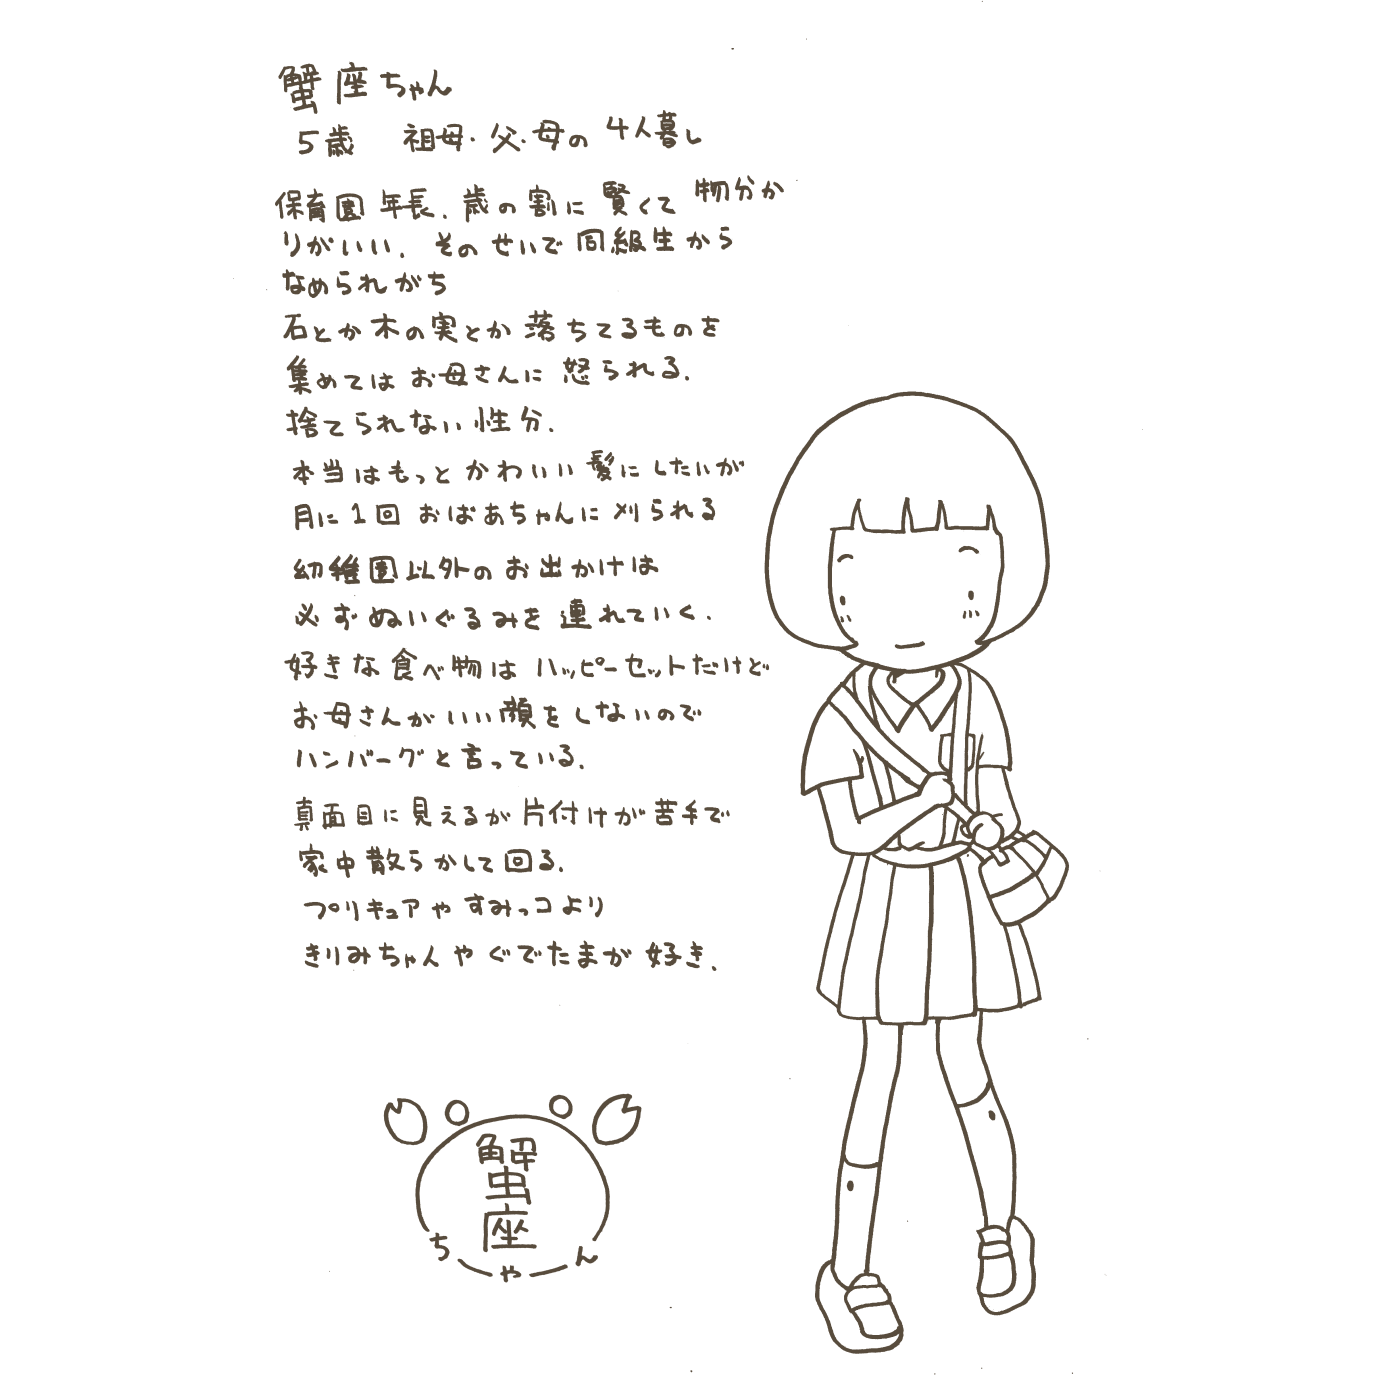 蟹座ちゃん
5歳 祖母・父・母の4人暮し
保育園年長、歳の割に賢くて物分か
りがいい、そのせいで同級生から
なめられがち
石とか木の実とか落ちてるものを
集めてはお母さんに怒られる。
捨てられない性分。
本当はもっとかわいい髪にしたいが
月に1回おばあちゃんに刈られる
幼稚園以外のお出かけは
必ずぬいぐるみを連れていく。
好きな食べ物はハッピーセットだけど
お母さんがいい顔をしないので
ハンバーグと言っている。
真面目に見えるが片付けが苦手で
家中散らかして回る。
プリキュアやすみっコより
きりみちゃんやぐでたまが好き。
蟹座
ちゃん